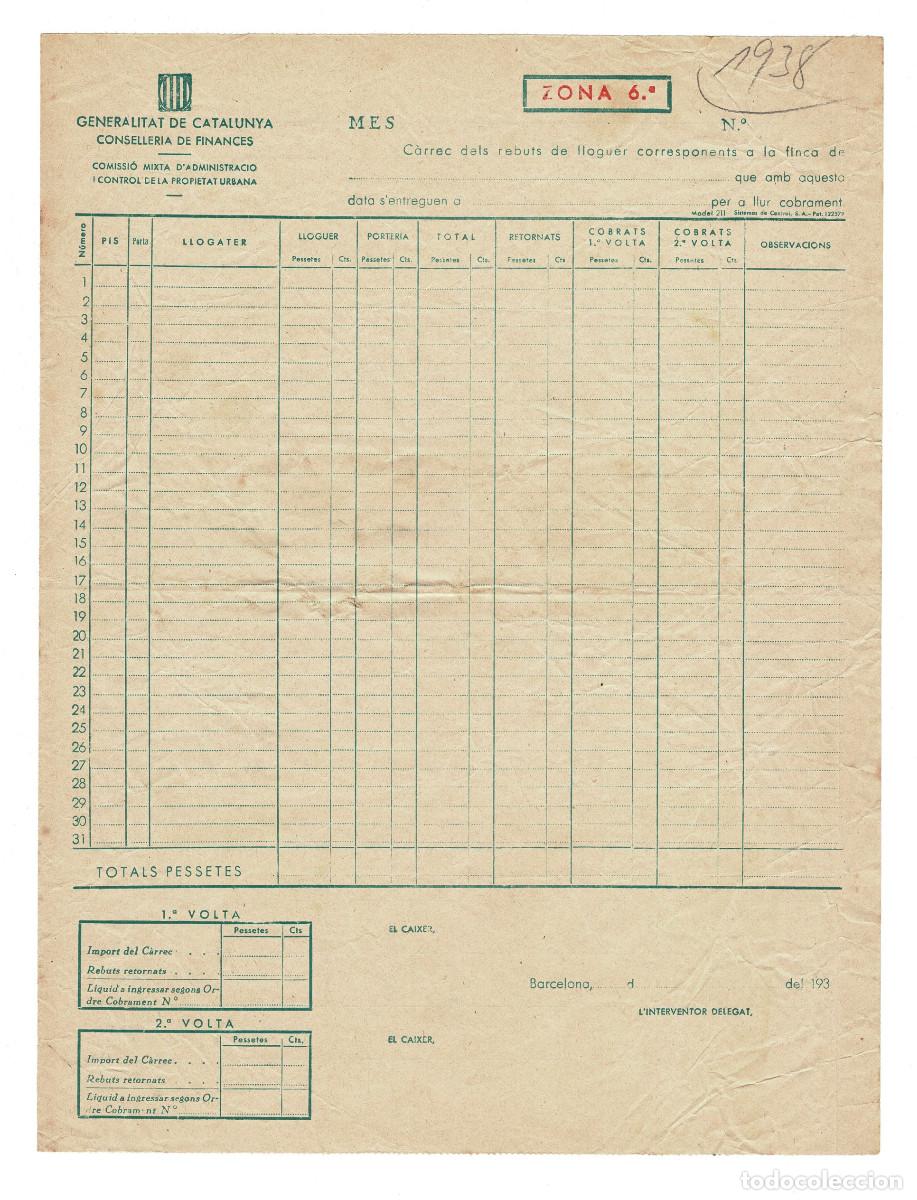 1938
ZONA 6.ª
GENERALITAT DE CATALUNYA
CONSELLERIA DE FINANCES
COMISSIÓ MIXTA D'ADMINISTRACIO
I CONTROL DE LA PROPIETAT URBANA
MES N.º
Càrrec dels rebuts de lloguer corresponents a la finca de
que amb aquesta
data s'entreguen a per a llur cobrament.
Model 211 Sistemas de Control, S. A. - Pat. 122579
Número PIS Porta LLOGATER LLOGUER PORTERIA TOTAL RETORNATS COBRATS 1.ª VOLTA COBRATS 2.ª VOLTA OBSERVACIONS
Pessetes Cts. Pessetes Cts. Pessetes Cts. Pessetes Cts Pessetes Cts. Pessetes Cts.
1
2
3
4
5
6
7
8
9
10
11
12
13
14
15
16
17
18
19
20
21
22
23
24
25
26
27
28
29
30
31
TOTALS PESSETES
1.ª VOLTA
Pessetes Cts
Import del Càrrec . . .
Rebuts retornats . . . .
Líquid a ingressar segons Or-
dre Cobrament N.º
EL CAIXER,
Barcelona, d del 193
L'INTERVENTOR DELEGAT,
2.ª VOLTA
Pessetes Cts.
Import del Càrrec . . . .
Rebuts retornats . . . .
Líquid a ingressar segons Or-
dre Cobrament N.º
EL CAIXER,
todocoleccion
todocoleccion.net